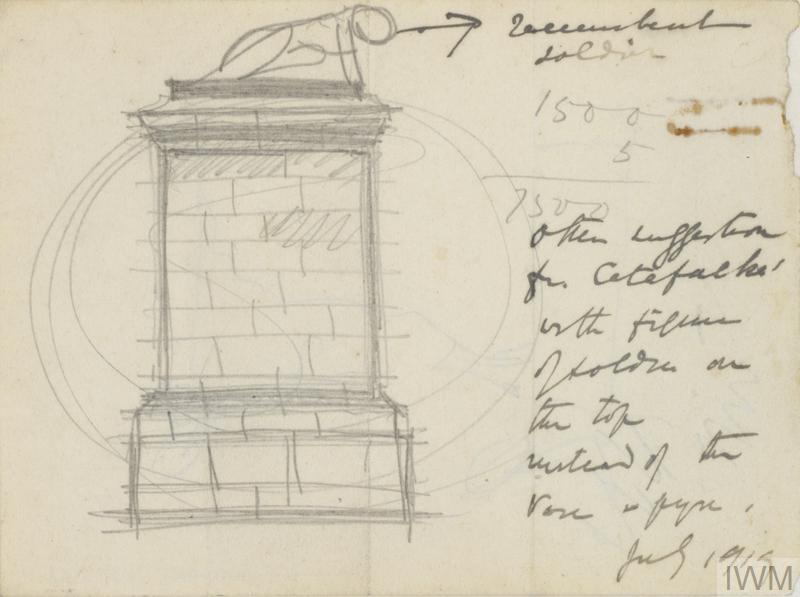 recumbent
soldier
1500
5
7500
other suggestion
for Catafalke'
with figure
of soldier on
the top
instead of the
Vase & pyre.
July 1919
IWM